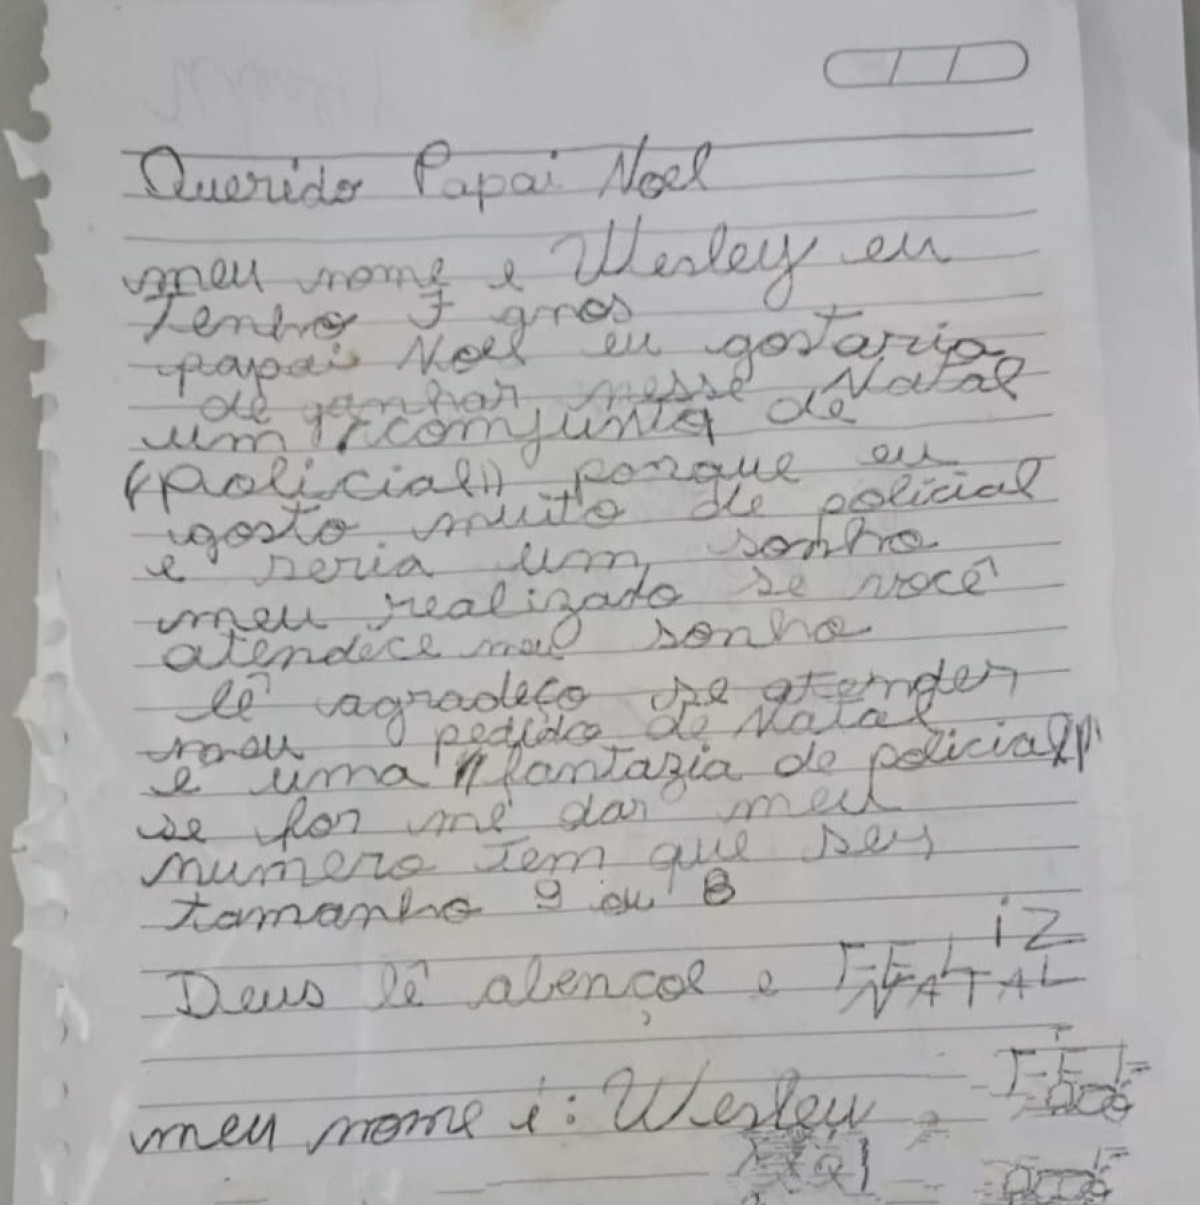 Querido Papai Noel
meu nome e Wesley eu
Tenho 7 anos
papai Noel eu gostaria
de ganhar nesse Natal
um conjunto de
"policial" porque eu
gosto muito de policial
e seria um sonho
meu realizado se você
atendece meu sonho
lê agradeço se atender
meu pedido de Natal
e uma "fantazia de policial"
se for me dar meu
numero tem que ser
tamanho 9 ou 8
Deus lê abençoe e FELIZ
NATAL
meu nome é: Wesley